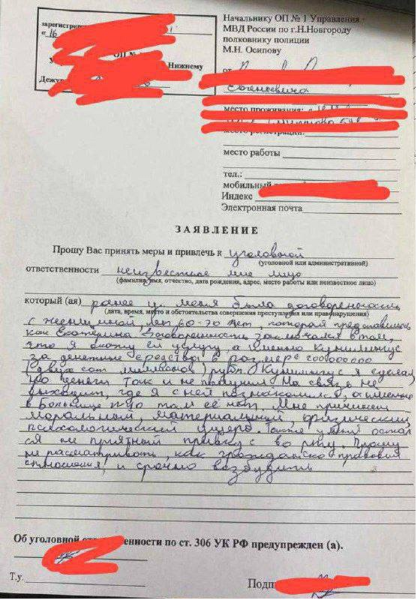 зарегистри
« 16
ОП №
Нижнему
Дежу
Начальнику ОП № 1 Управления
МВД России по г.Н.Новгороду
полковнику полиции
М.Н. Осипову
от
Евгеньевича
место проживания:
место регистрации:
место работы
тел.:
мобильный
Индекс
Электронная почта
ЗАЯВЛЕНИЕ
Прошу Вас принять меры и привлечь к уголовной
(уголовной или административной)
ответственности неизвестное мне лицо
(фамилия, имя, отчество, дата рождения, адрес, место работы или неизвестное лицо)
который (ая) ранее у меня была договоренность
(дата, время, место и обстоятельства совершения преступления или правонарушения)
с женщиной лет 60-70 лет, которая представилась
как Екатерина. Договоренность заключалась в том,
что я окажу ей услугу, а именно Кунилингус
за денежные средства в размере
(двухсот миллионов) руб. Кунилингус я сделал
но деньги так и не получил. На связь не
выходит, где я с ней познакомился, а именно
в больнице №30 там ее нет. Мне причинен
моральный, материальный, физический,
психологический ущерб. Также у меня остал
ся не приятный привкус во рту. Прошу
не рассматривать, как гражданско правовые
отношения и срочно возбудить
Об уголовной ответственности по ст. 306 УК РФ предупрежден (а).
Т.у.
Подп